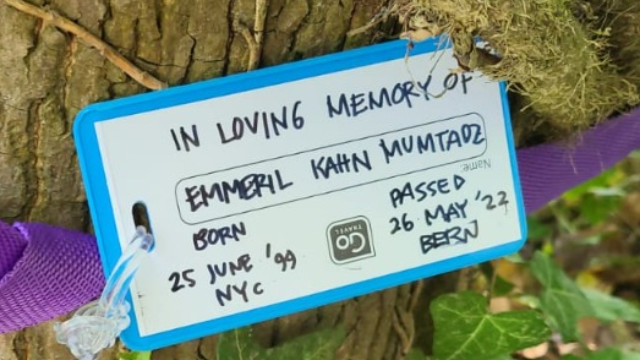 IN LOVING MEMORY OF
EMMERIL KAHN MUMTADZ
Name:
BORN
25 JUNE '99
NYC
GO
TRAVEL
PASSED
26 MAY '22
BERN